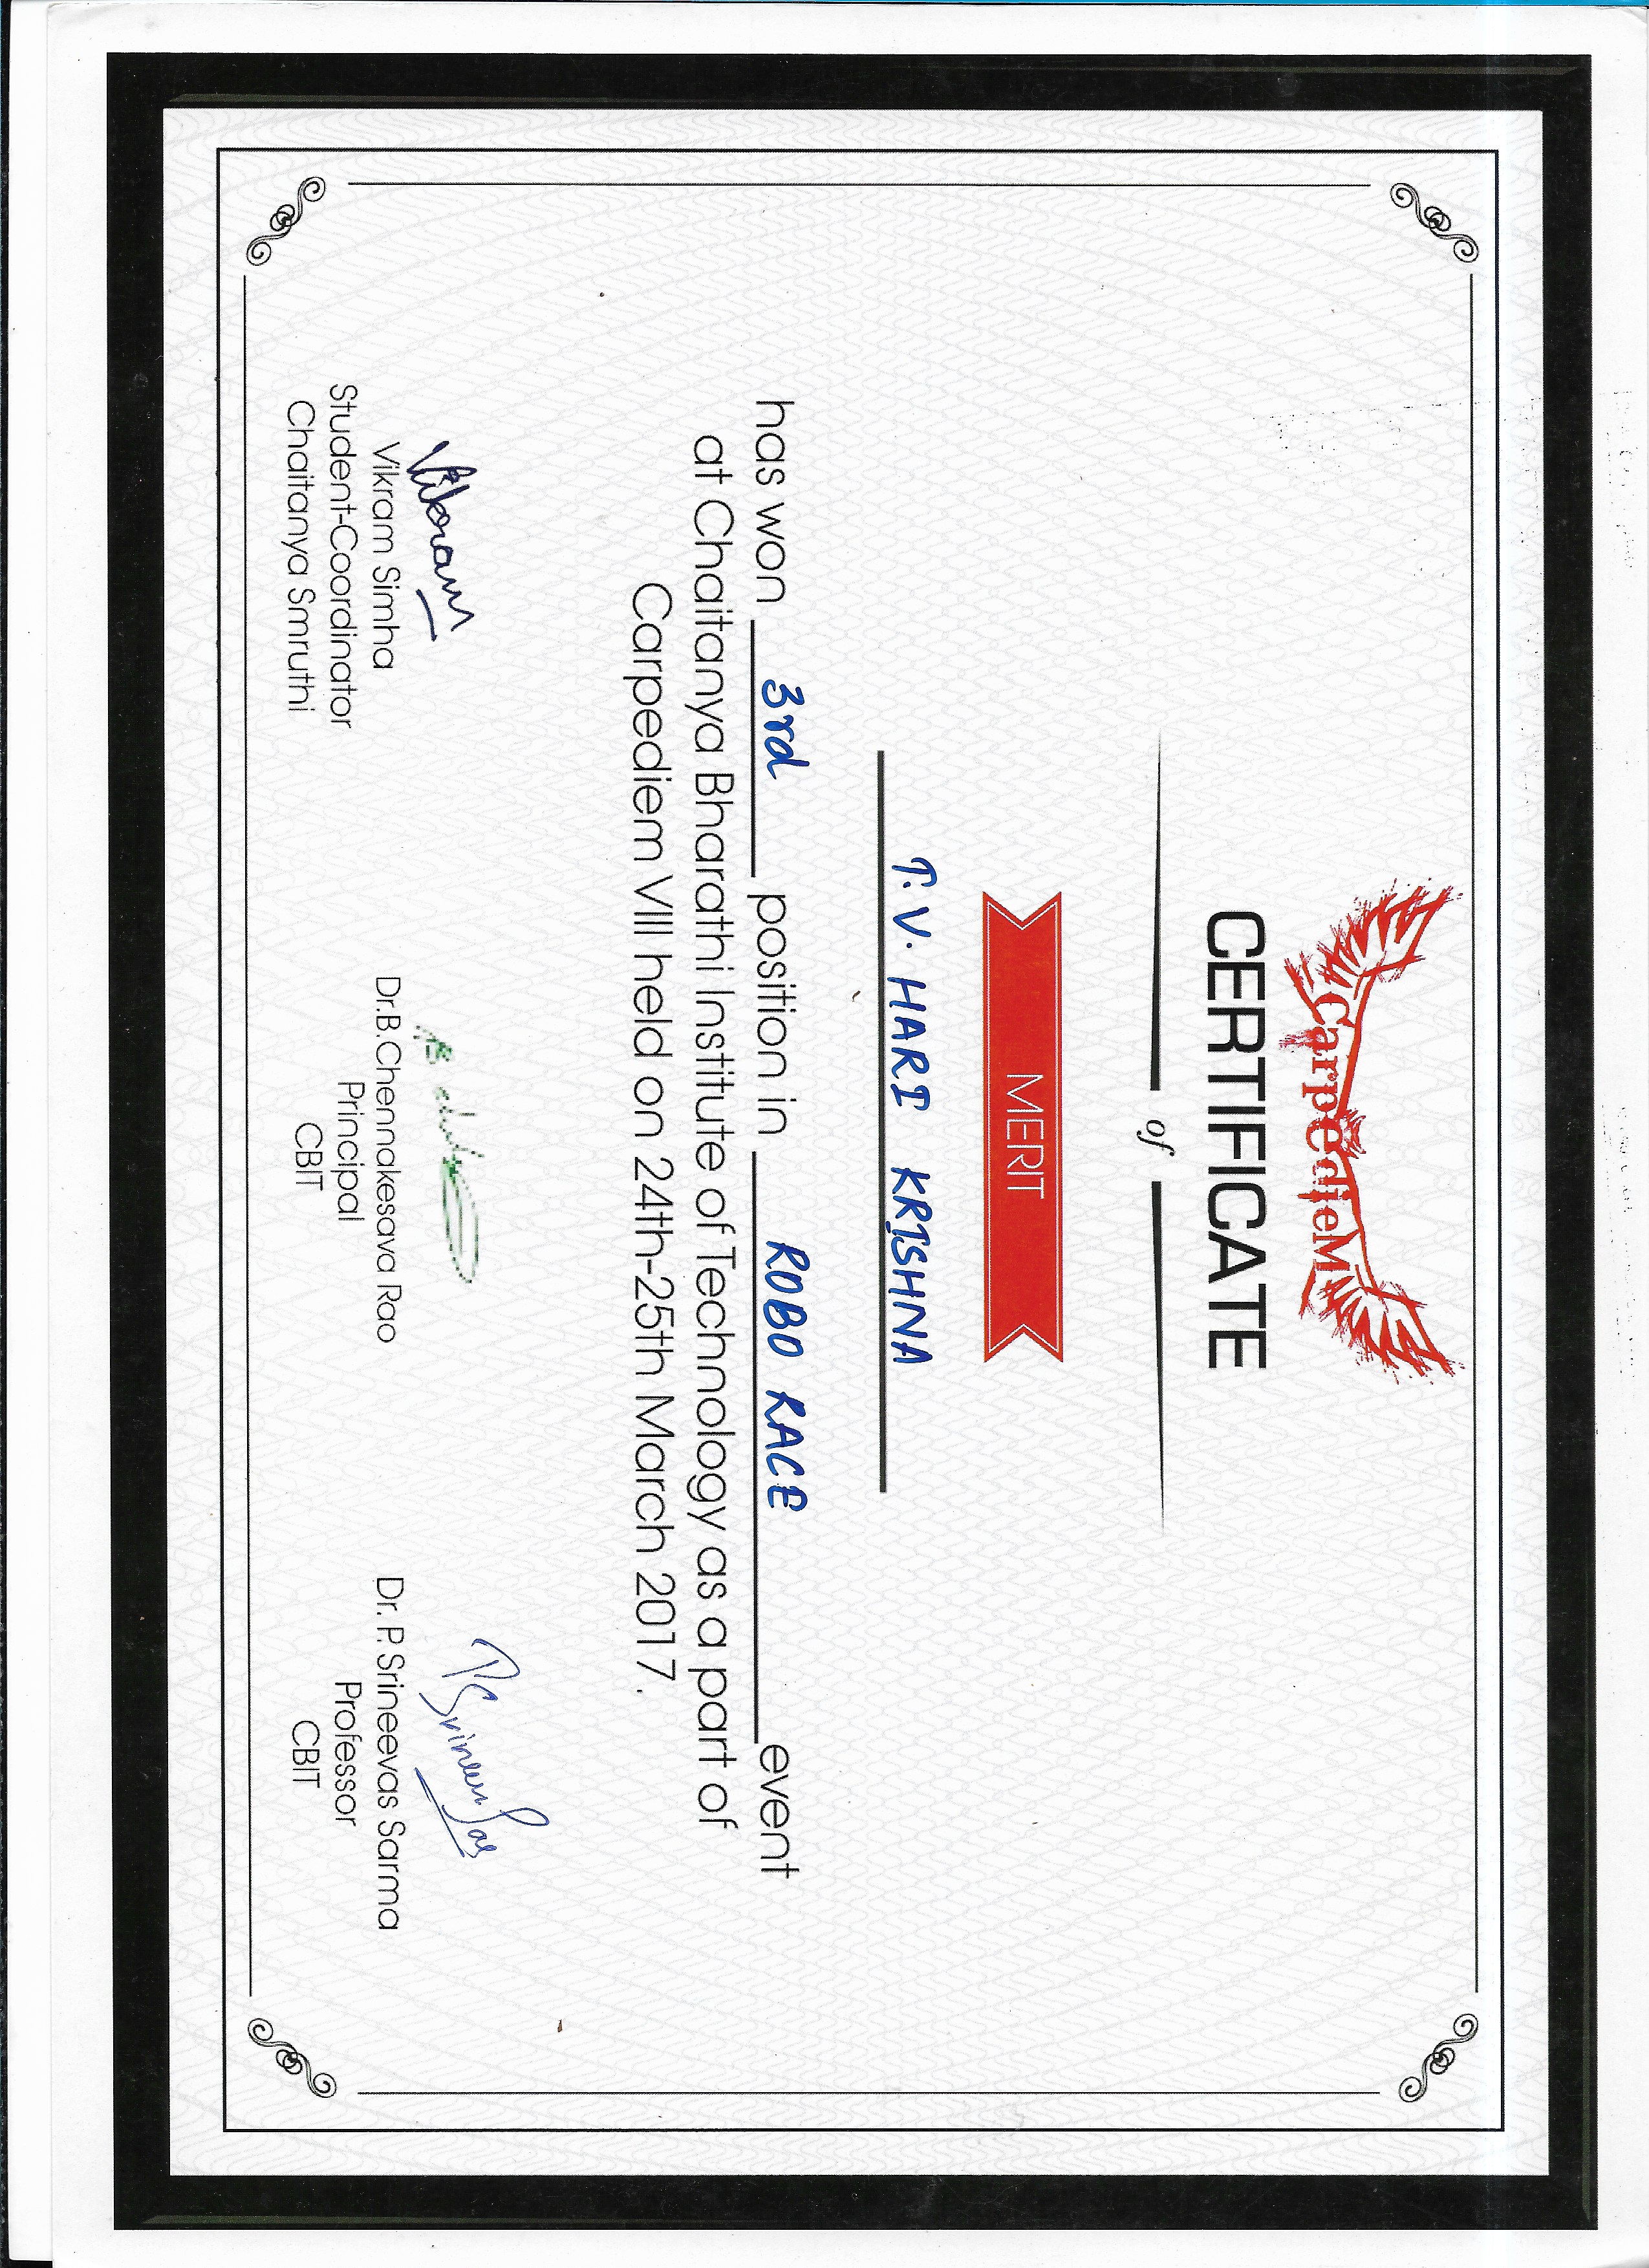 CarpedieM
CERTIFICATE
of
MERIT
T. V. HARI KRISHNA
has won 3rd position in ROBO RACE event
at Chaitanya Bharathi Institute of Technology as a part of
Carpediem VIII held on 24th-25th March 2017.
Vikram
Vikram Simha
Student-Coordinator
Chaitanya Smruthi
Dr.B.Chennakesava Rao
Principal
CBIT
Dr. P. Srineevas Sarma
Professor
CBIT